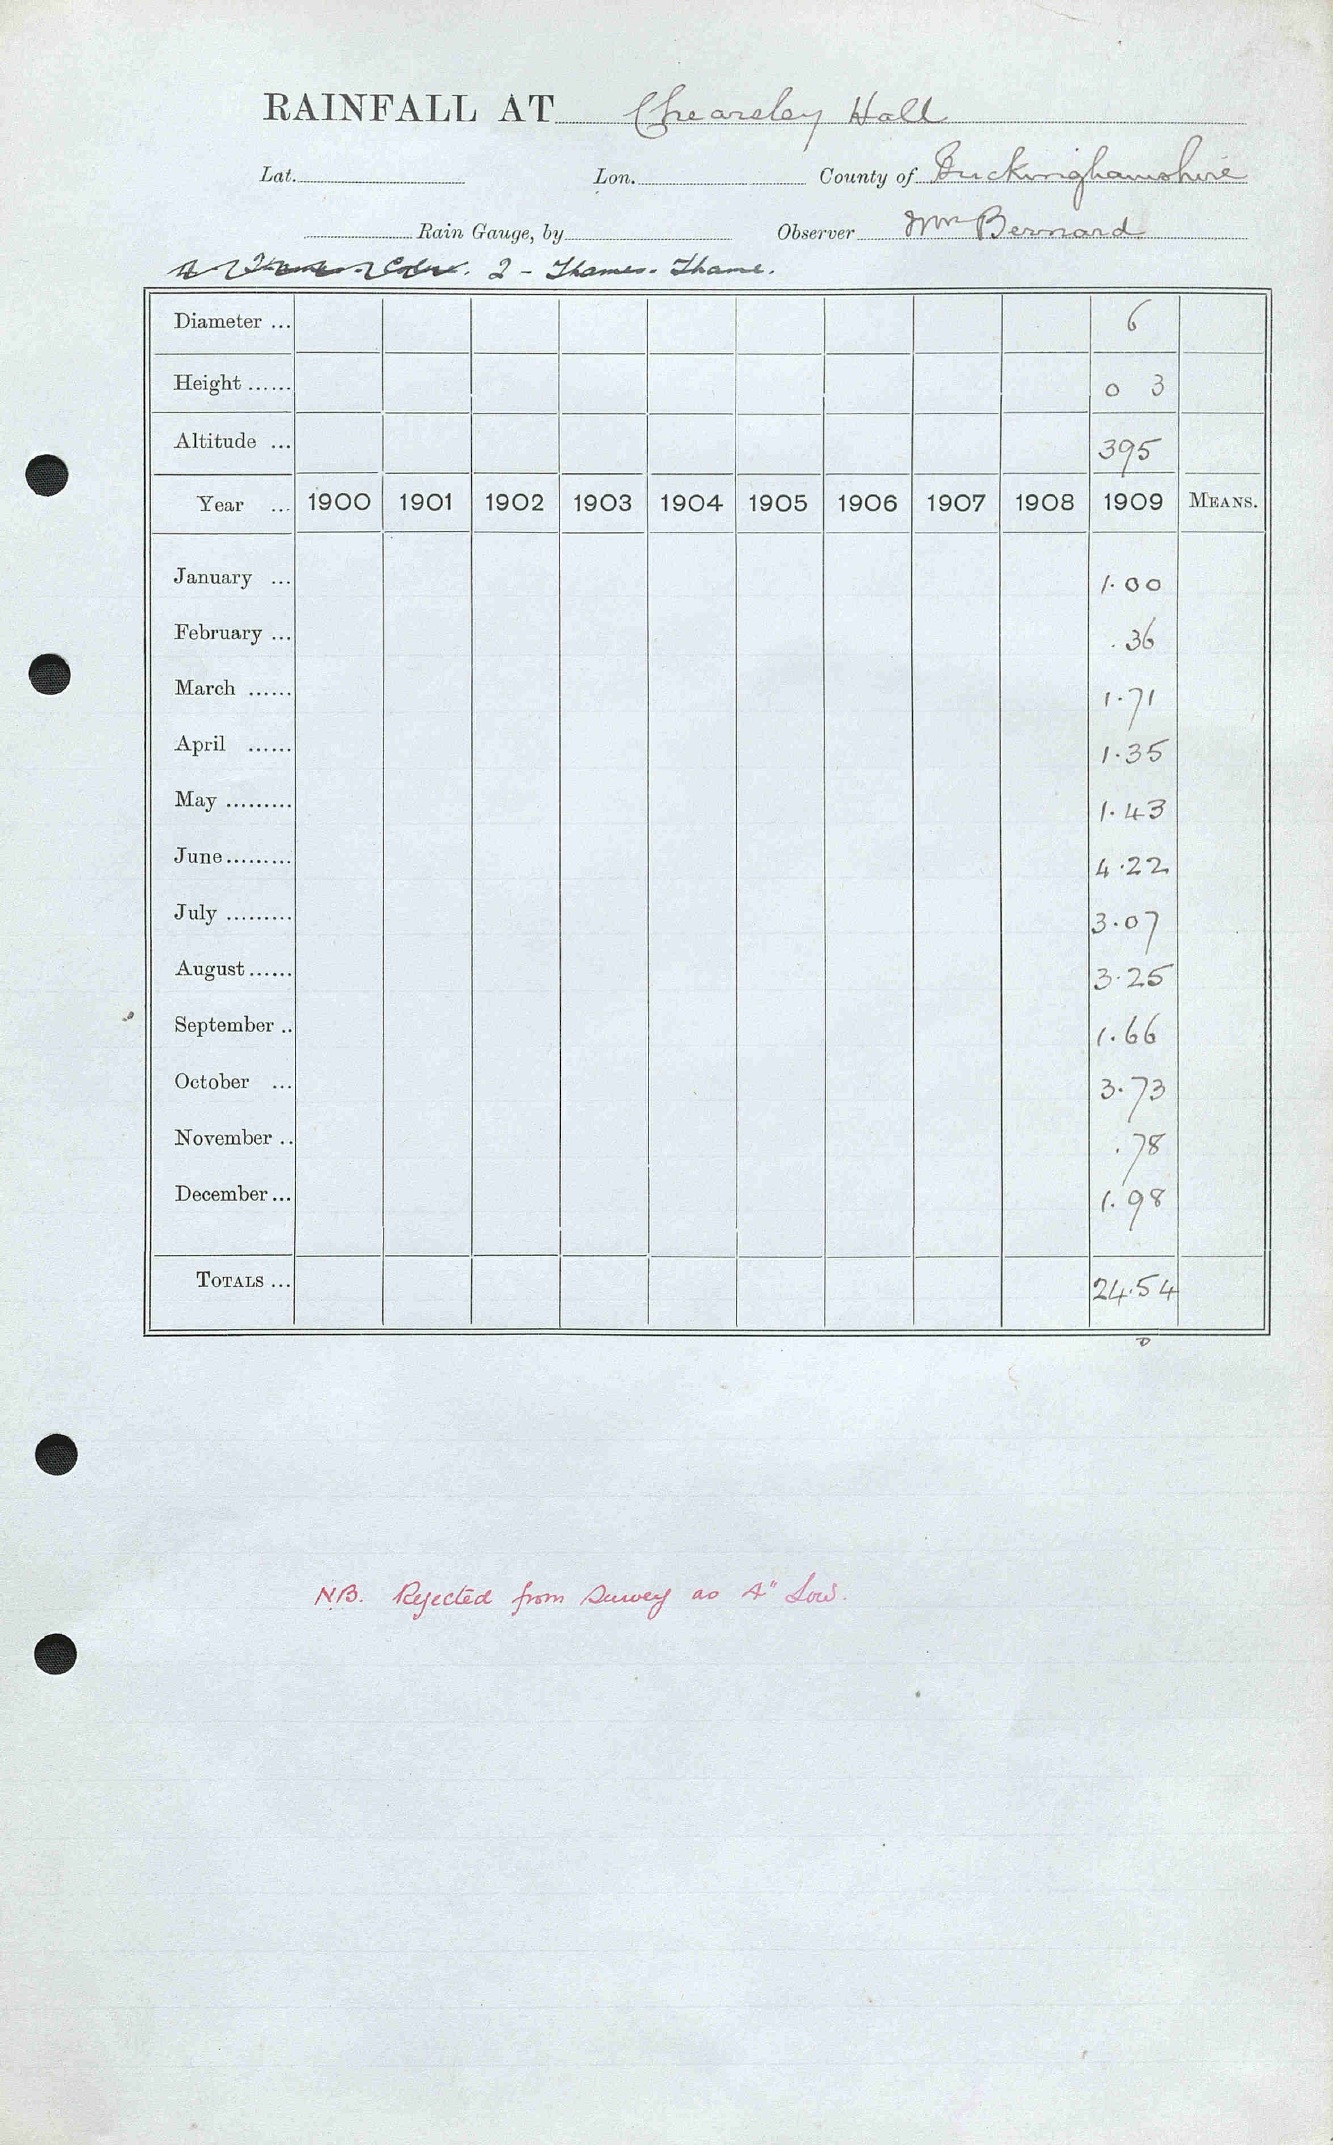 RAINFALL AT Chearsley Hall
Lat. Lon. County of Buckinghamshire
Rain Gauge, by Observer Wm Bernard
2 - Thames - Thame.
Diameter ... 6
Height ...... 0 3
Altitude ... 395
Year ... 1900 1901 1902 1903 1904 1905 1906 1907 1908 1909 MEANS.
January ... 1.00
February ... .36
March ...... 1.71
April ...... 1.35
May ......... 1.43
June ......... 4.22
July ......... 3.07
August ...... 3.25
September .. 1.66
October ... 3.73
November .. .78
December ... 1.98
TOTALS ... 24.54
NB. Rejected from Survey as 4" Low.